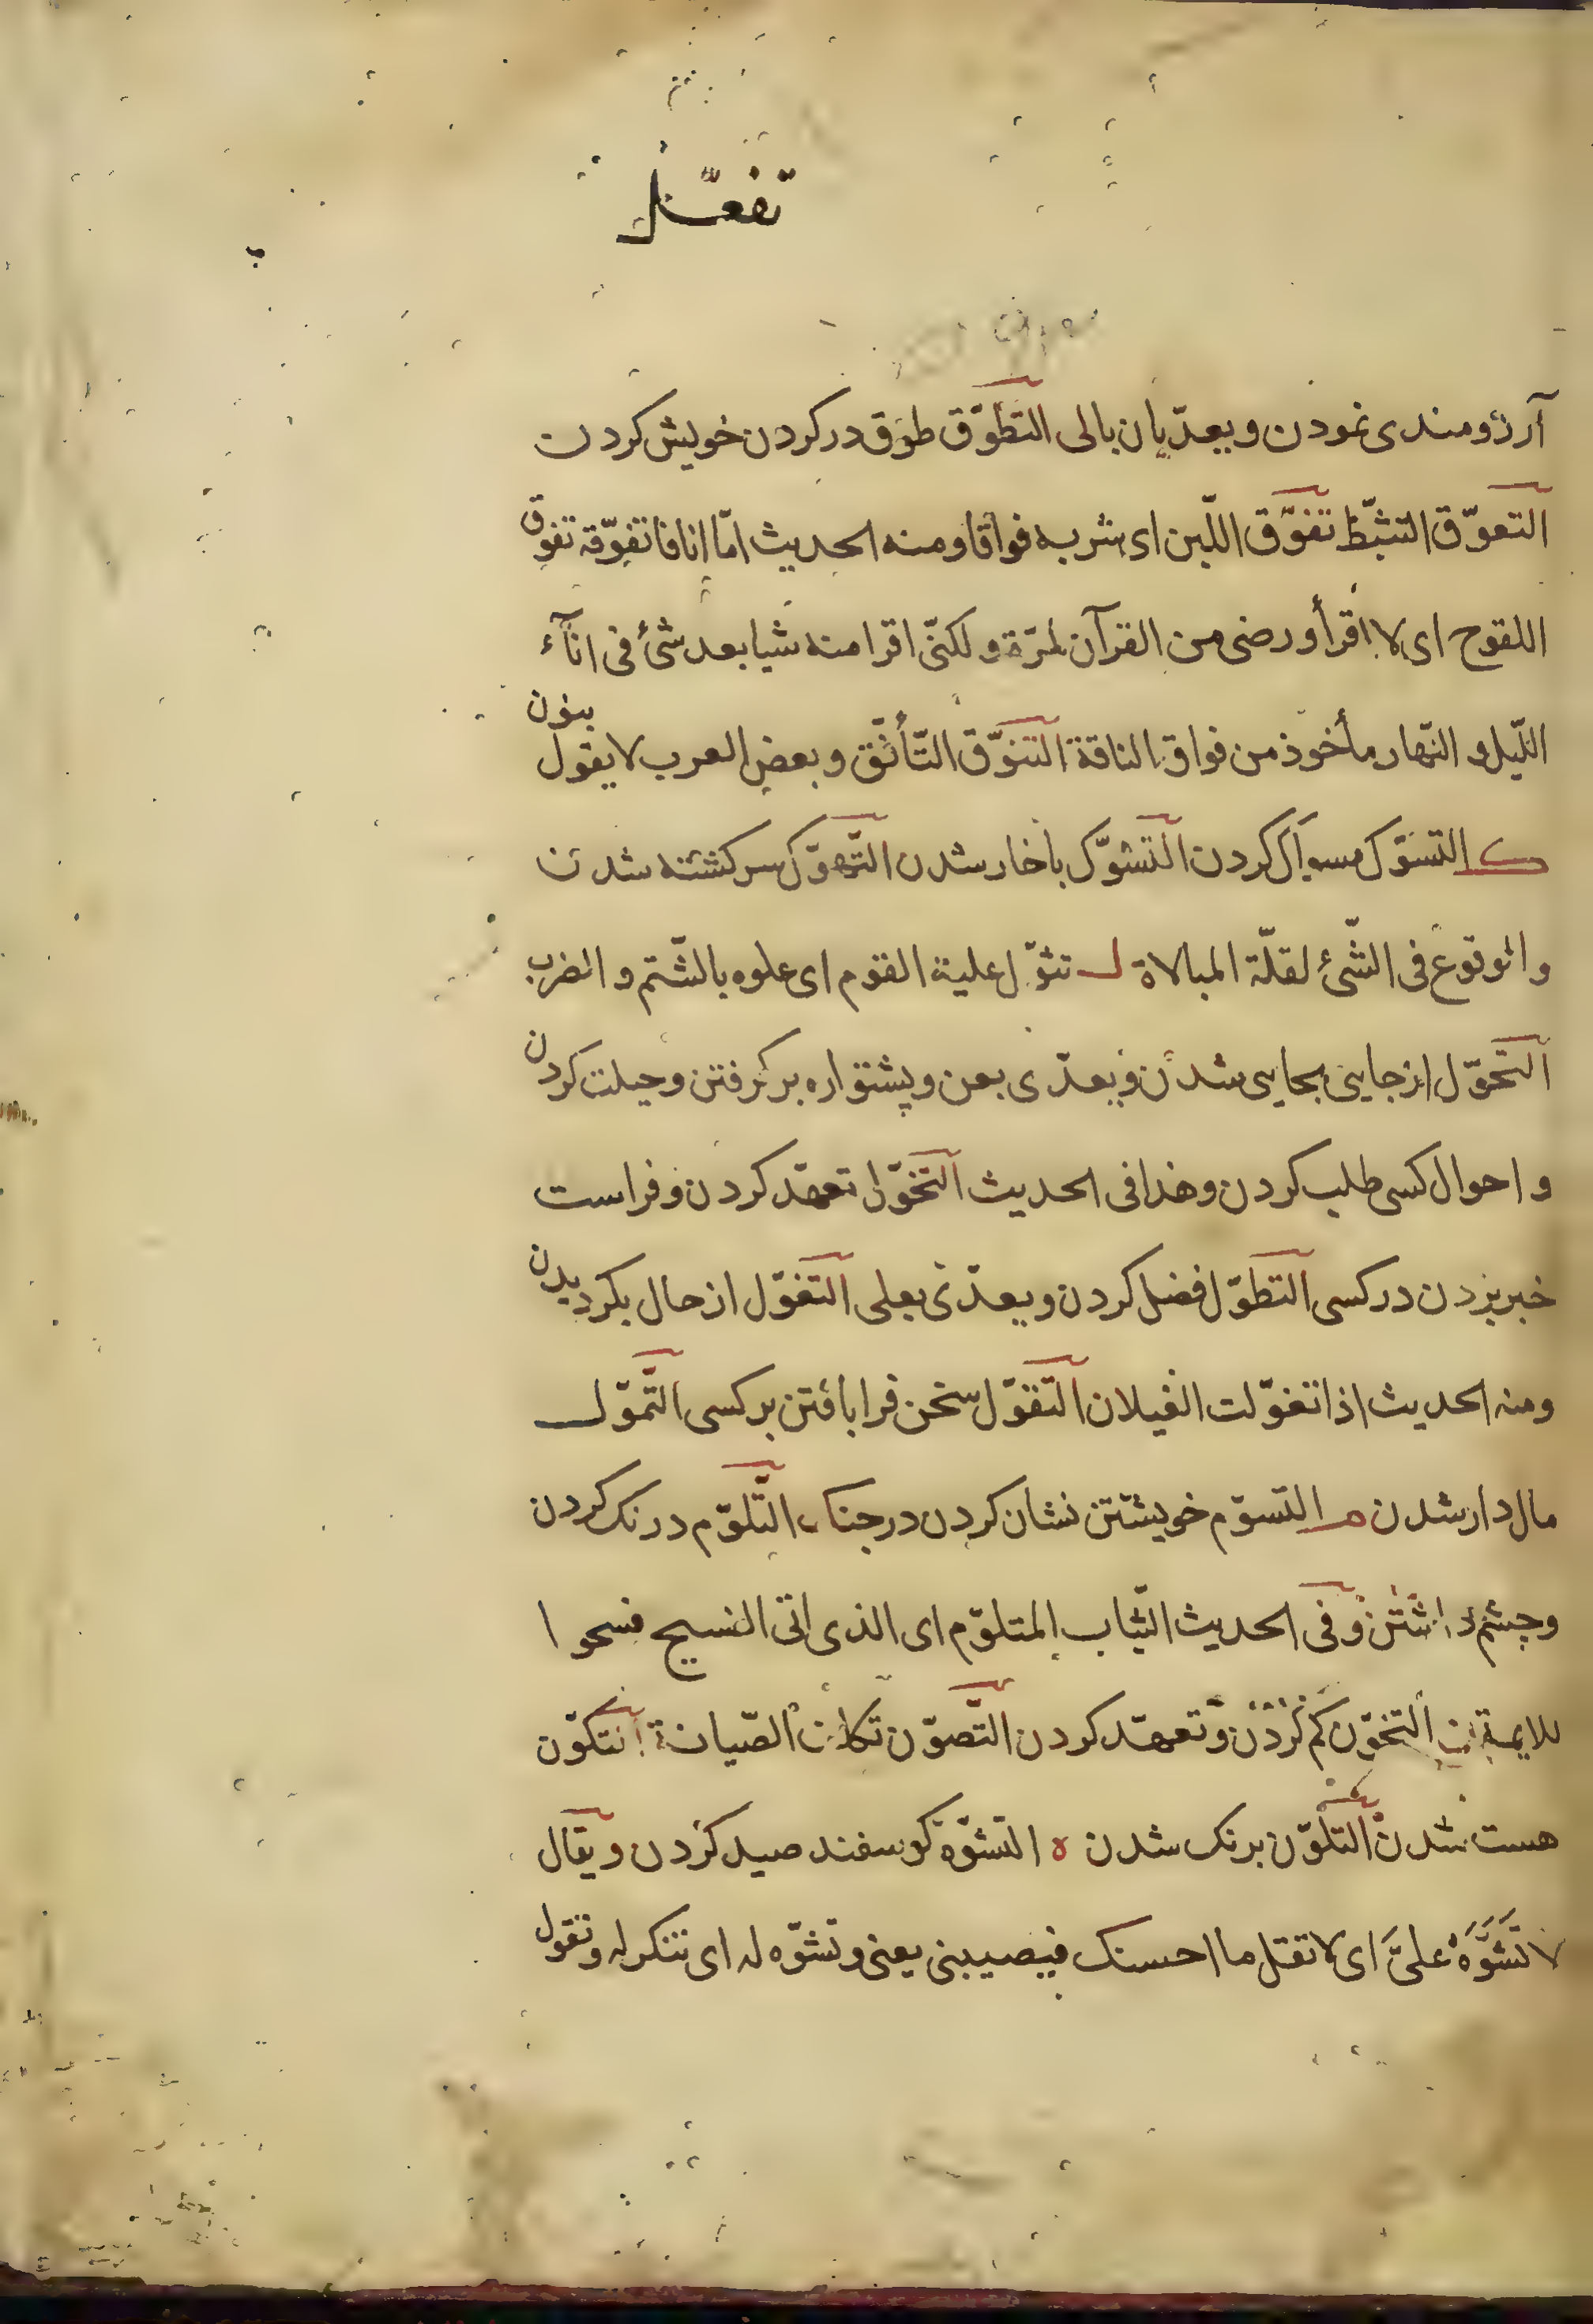 تفعّل
آرزومندی نمودن ویعدّیان بالی التطوّق طوق در کردن خویش کردن
التعوّق التثبّط تفوّق اللّبن ای شربه فواقا ومنه الحدیث امّا انا فاتفوّقه تفوق
اللقوح ای لا اقرأ ورضی من القرآن لمرّة ولکنّی اقرا منه شیا بعد شئ فی انآء
اللّیل و النّهار مأخوذ من فواق الناقة التنوّق التّأنّق و بعض العرب لا یقول بنون
ک التسوّک مسواک کردن التشوّک باخار شدن التّهوّک سرکشته شدن
والوقوع فی الشّئ لقلّة المبالاة ل تثوّل علیه القوم ای علوه بالشّتم و الضرب
التحوّل از جایی بجایی شدن ویعدّی بعن و پشتواره برکرفتن وحیلت کردن
و احوال کسی طلب کردن وهذا فی الحدیث التخوّل تعهّد کردن وفراست
خبر بردن در کسی التطوّل فضل کردن ویعدّی بعلی التغوّل از حال بکردیدن
ومنه الحدیث اذا تغوّلت الغیلان التقوّل سخن فرا بافتن بر کسی التّموّل
مال دار شدن م التسوّم خویشتن نشان کردن در جنک التّلوّم درنک کردن
وچشم داشتن وفی الحدیث الشّاب المتلوّم ای الذی اتی القسیح فسحوا
للایمة ن التخوّن کم کردن وتعهّد کردن التّصوّن تکلف الصّیانة التکوّن
هست شدن التلوّن برنک شدن ه التشوّه کوسفند صید کردن ویقال
لا تَشَوَّهْ علیَّ ای لا تقل ما احسنک فیصیبنی یعنی وتشوّه له ای تنکر له وتقول